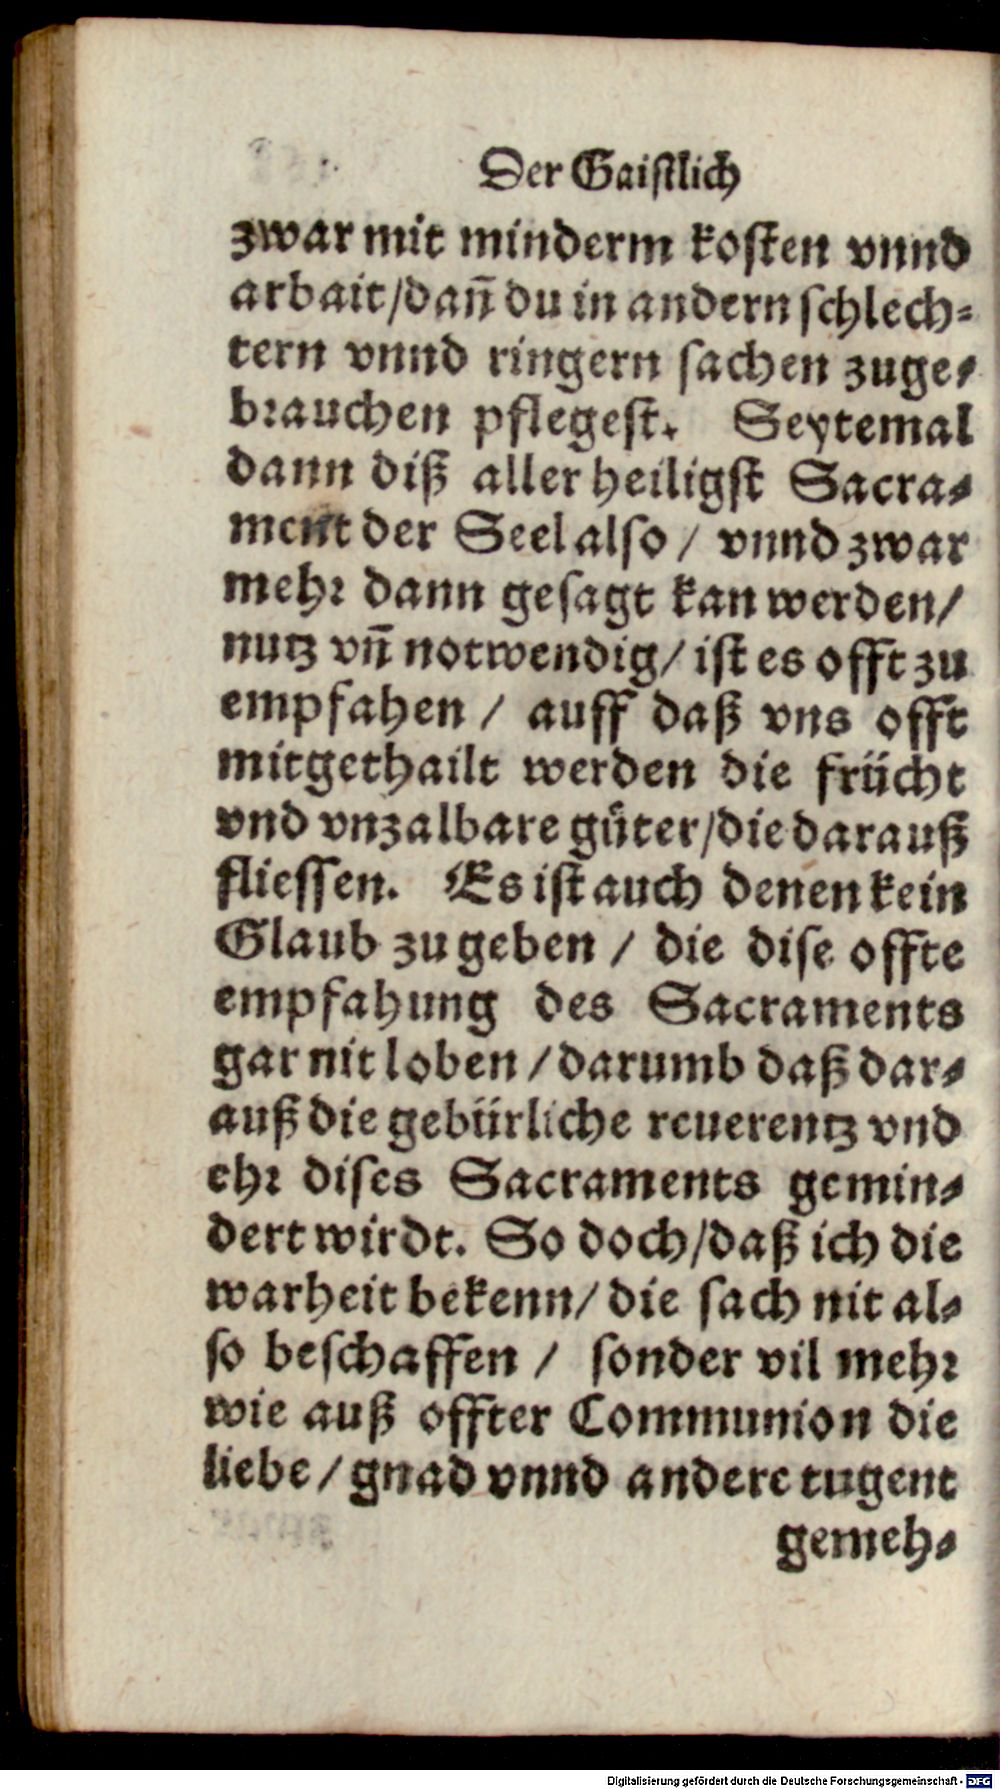 Der Gaistlich
zwar mit minderm kosten vnnd
arbait/dañ du in andern schlech⸗
tern vnnd ringern sachen zuge⸗
brauchen pflegest. Seytemal
dann diß aller heiligst Sacra⸗
ment der Seel also / vnnd zwar
mehr dann gesagt kan werden/
nutz vñ notwendig/ ist es offt zu
empfahen / auff daß vns offt
mitgethailt werden die frücht
vnd vnzalbare güter/die darauß
fliessen. Es ist auch denen kein
Glaub zu geben / die dise offte
empfahung des Sacraments
gar nit loben /darumb daß dar⸗
auß die gebürliche reuerentz vnd
ehr dises Sacraments gemin⸗
dert wirdt. So doch/daß ich die
warheit bekenn/ die sach nit al⸗
so beschaffen / sonder vil mehr
wie auß offter Communion die
liebe / gnad vnnd andere tugent
gemeh⸗
Digitalisierung gefördert durch die Deutsche Forschungsgemeinschaft - DFG